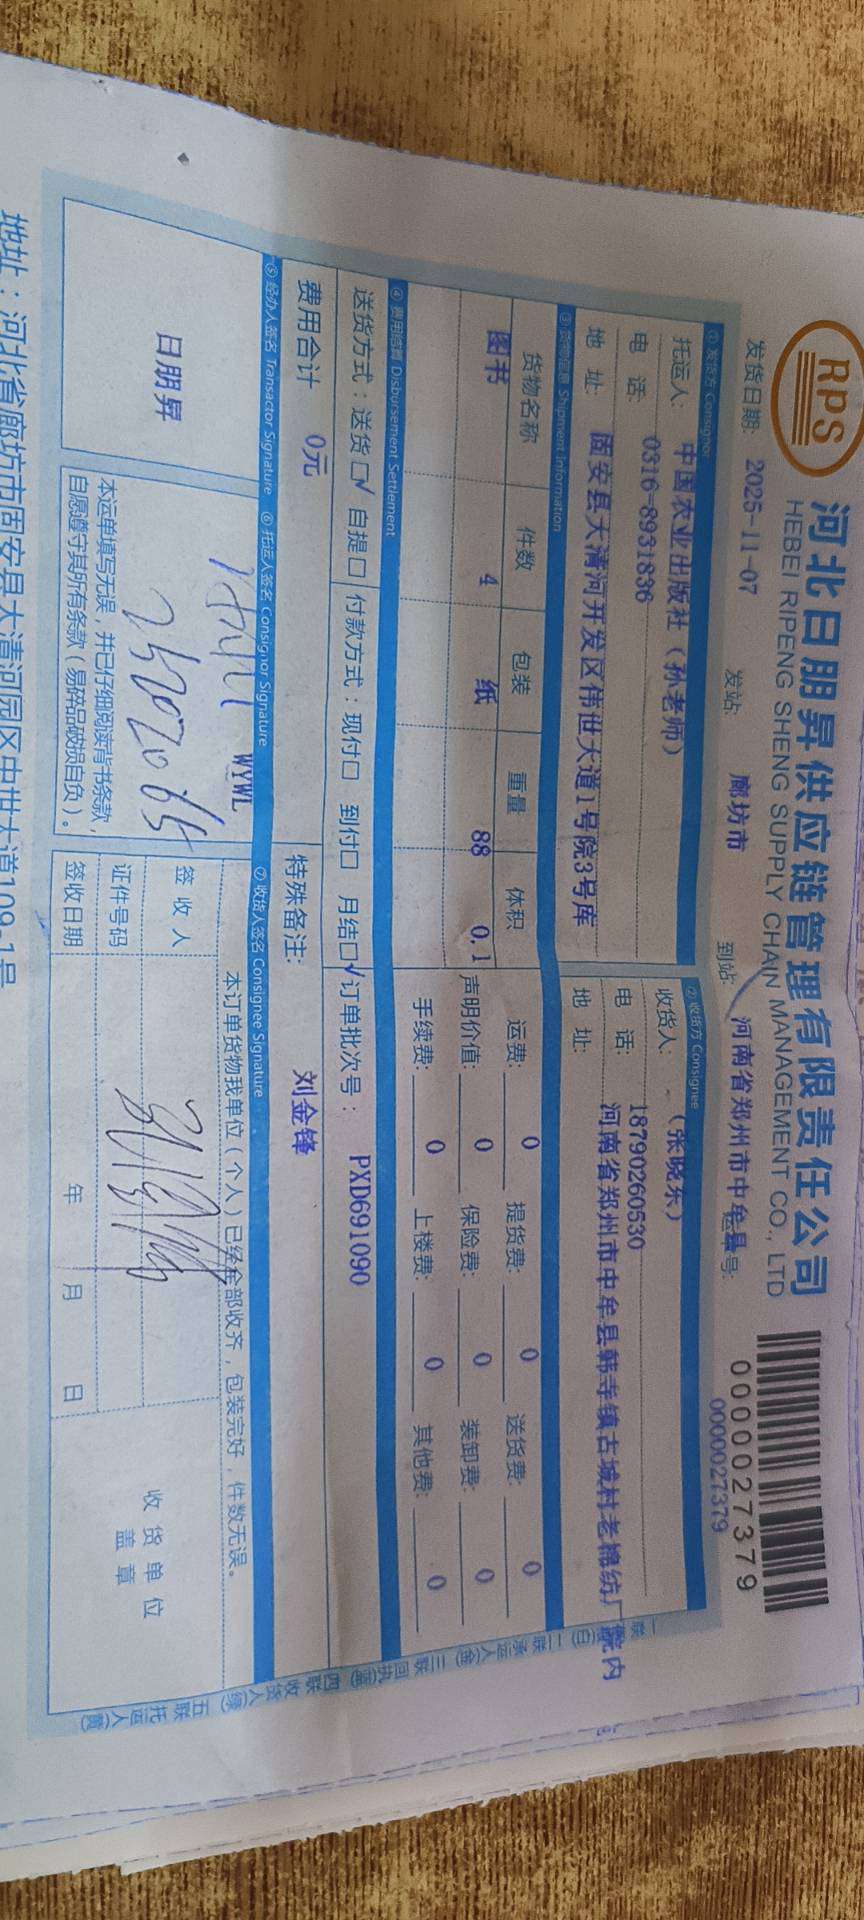 RPS
河北日朋昇供应链管理有限责任公司
HEBEI RIPENG SHENG SUPPLY CHAIN MANAGEMENT CO., LTD
0000027379
发货日期: 2025-11-07 发站: 廊坊市 到站: 河南省郑州市中牟县 号: 0000027379
① 发货方 Consignor
托运人: 中国农业出版社（孙老师）
电 话: 0316-8931836
地 址: 固安县大清河开发区伟世大道1号院3号库
② 收货方 Consignee
收货人: （张晓东）
电 话: 18790260530
地 址: 河南省郑州市中牟县韩寺镇古城村老棉纺厂院内
③ 货物信息 Shipment Information
货物名称 件数 包装 重量 体积
图书 4 纸 88 0.1
运费: 0 提货费: 0 送货费: 0
声明价值: 0 保险费: 0 装卸费: 0
手续费: 0 上楼费: 0 其他费: 0
④ 费用结算 Disbursement Settlement
送货方式：送货□√ 自提□ 付款方式：现付□ 到付□ 月结□√ 订单批次号： PXD691090
费用合计 0元 特殊备注: 刘金锋
⑤ 经办人签名 Transactor Signature ⑥ 托运人签名 Consignor Signature ⑦ 收货人签名 Consignee Signature
日朋昇
WYWL
本运单填写无误，并已仔细阅读背书条款，
自愿遵守其所有条款（易碎品破损自负）。
本订单货物我单位（个人）已经全部收齐，包装完好，件数无误。
签 收 人
证件号码
签收日期 年 月 日
收 货 单 位
盖 章
二联承运人(金) 三联回执(蓝) 四联收货人(绿) 五联托运人(黄)
地址：河北省廊坊市固安县大清河园区中世大道109-1号